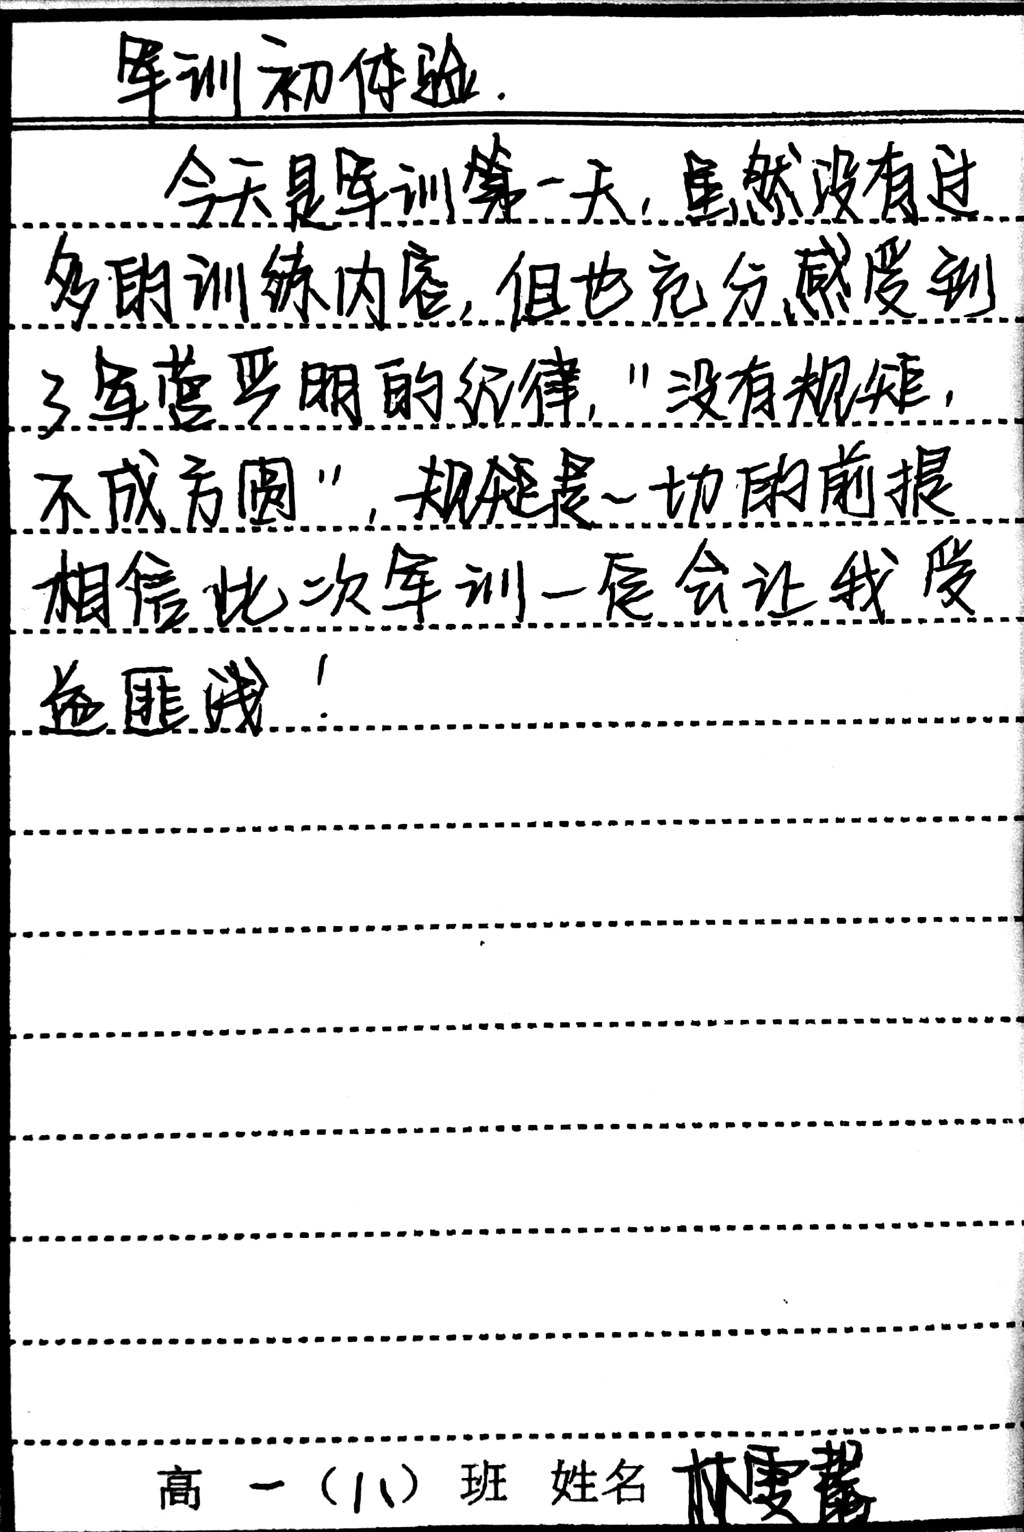 军训初体验.
今天是军训第一天,虽然没有过
多的训练内容,但也充分感受到
了军营严明的纪律,"没有规矩,
不成方圆",规矩是一切的前提
相信此次军训一定会让我受
益匪浅!
高一(八)班 姓名 林雯